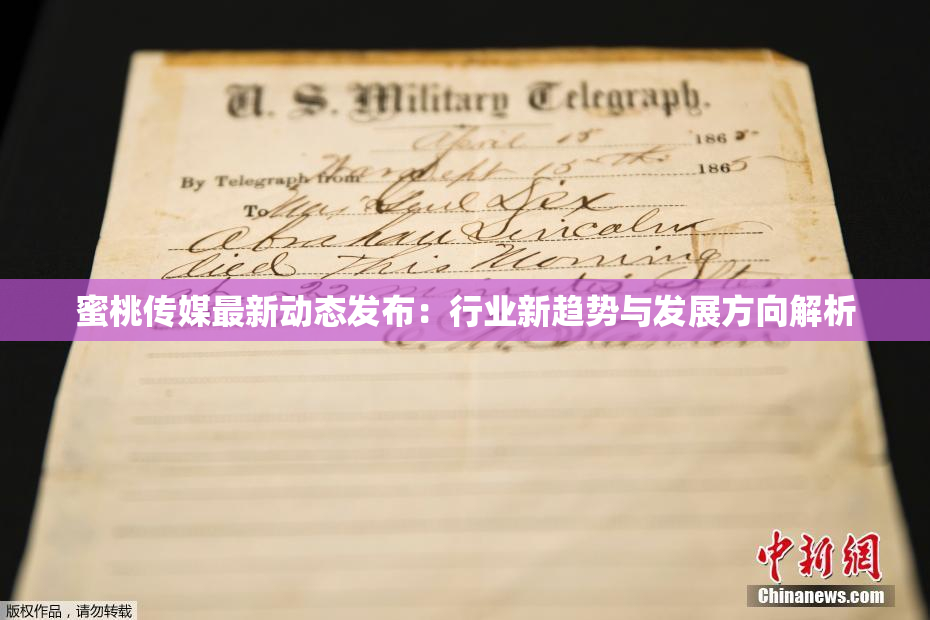 U. S. Military Telegraph.
April 15 1865
By Telegraph from War Dept 15th 1865
To Maj Genl Dix
Abraham Lincoln
died This Morning
at 22 minutes after
蜜桃传媒最新动态发布：行业新趋势与发展方向解析
E. M. Stanton
中新网
Chinanews.com
版权作品，请勿转载